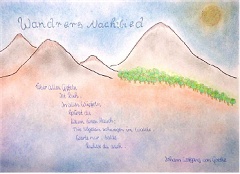 Wandrers Nachtlied
Über allen Gipfeln
Ist Ruh,
In allen Wipfeln
Spürest du
Kaum einen Hauch;
Die Vögelein schweigen im Walde
Warte nur, balde
Ruhest du auch
Johann Wolfgang von Goethe